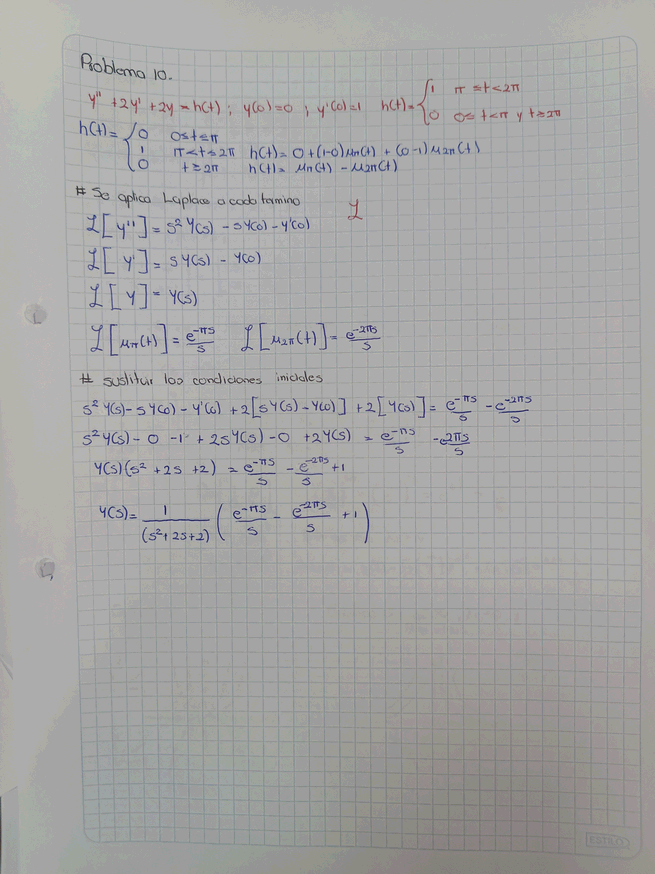 Problema 10.
y'' + 2y' + 2y = h(t) ; y(0)=0 ; y'(0)=1 h(t)= { 1 π ≤ t < 2π
0 0≤ t < π y t ≥ 2π
h(t)= { 0 0≤t≤π
1 π<t≤2π h(t)= 0+(1-0)μπ(t) + (0-1)μ2π(t)
0 t≥2π h(t)= μπ(t) - μ2π(t)
# Se aplica Laplace a cada termino ℒ
ℒ[y''] = s² Y(s) - sY(0) - y'(0)
ℒ[y'] = sY(s) - Y(0)
ℒ[y] = Y(s)
ℒ[μπ(t)] = e^-πs/s ℒ[μ2π(t)] = e^-2πs/s
# sustituir las condiciones iniciales
s² Y(s) - sY(0) - y'(0) + 2[sY(s) - Y(0)] + 2[Y(s)] = e^-πs/s - e^-2πs/s
s² Y(s) - 0 - 1 + 2sY(s) - 0 + 2Y(s) = e^-πs/s - e^-2πs/s
Y(s)(s² + 2s + 2) = e^-πs/s - e^-2πs/s + 1
Y(s) = 1/(s²+2s+2) ( e^-πs/s - e^-2πs/s + 1 )